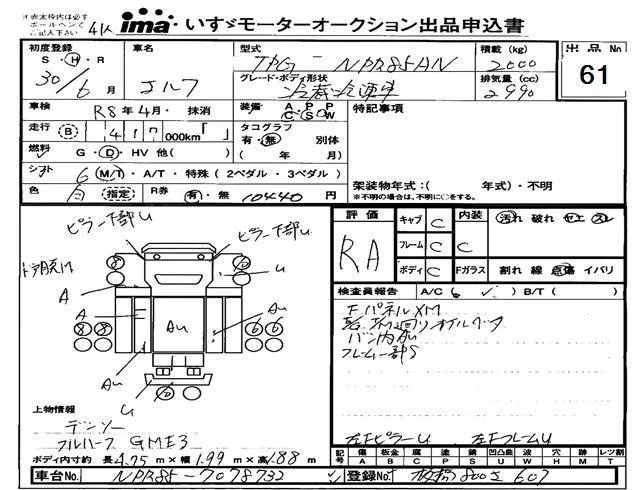 ※赤太枠内は必ず
ボールペンで
ご記入下さい
ima いすゞモーターオークション出品申込書
初度登録 車名 型式 積載 (kg) 出品No
S・H・R エルフ TPG-NPR85AN 2000 61
30/6月 グレード・ボディ形状 排気量 (cc)
冷蔵冷凍車 2990
車検 R8年4月・抹消 装備 A・P・P C・S・W 特記事項
走行 B 000km「 」 タコグラフ
有・無 別体
燃料 G・D・HV 他( ) ( 年 月)
シフト 6 M/T・A/T・特殊 (2ペダル・3ペダル)
架装物年式:( 年式)・不明
色 白 (指定) R券 有・無 10440 円 ※不明の場合は、不明に○をする。
評価 キャブ C 内装 汚れ 破れ ヤニ スレ
RA フレーム C C
ボディ C Fガラス 割れ 線 点傷 イバリ
ピラー下部U ピラー下部U
U
A
A
Au A
Au
8 8 6 6
Au
U
検査員報告 A/C( ✓ ) B/T( )
FパネルXM
バン内Au
フレーム一部S
左FピラーU 左FフレームU
上物情報
デンソー
フルハーフ GME3
ボディ内寸約 長4.75m×幅1.99m×高1.88m
記号 傷 板金 腐 塗 錆 凹凸曲 波 穴 跡 レツ割
A B C P S U W H M T
車台No. NPR85-7078732 登録No. 800さ607